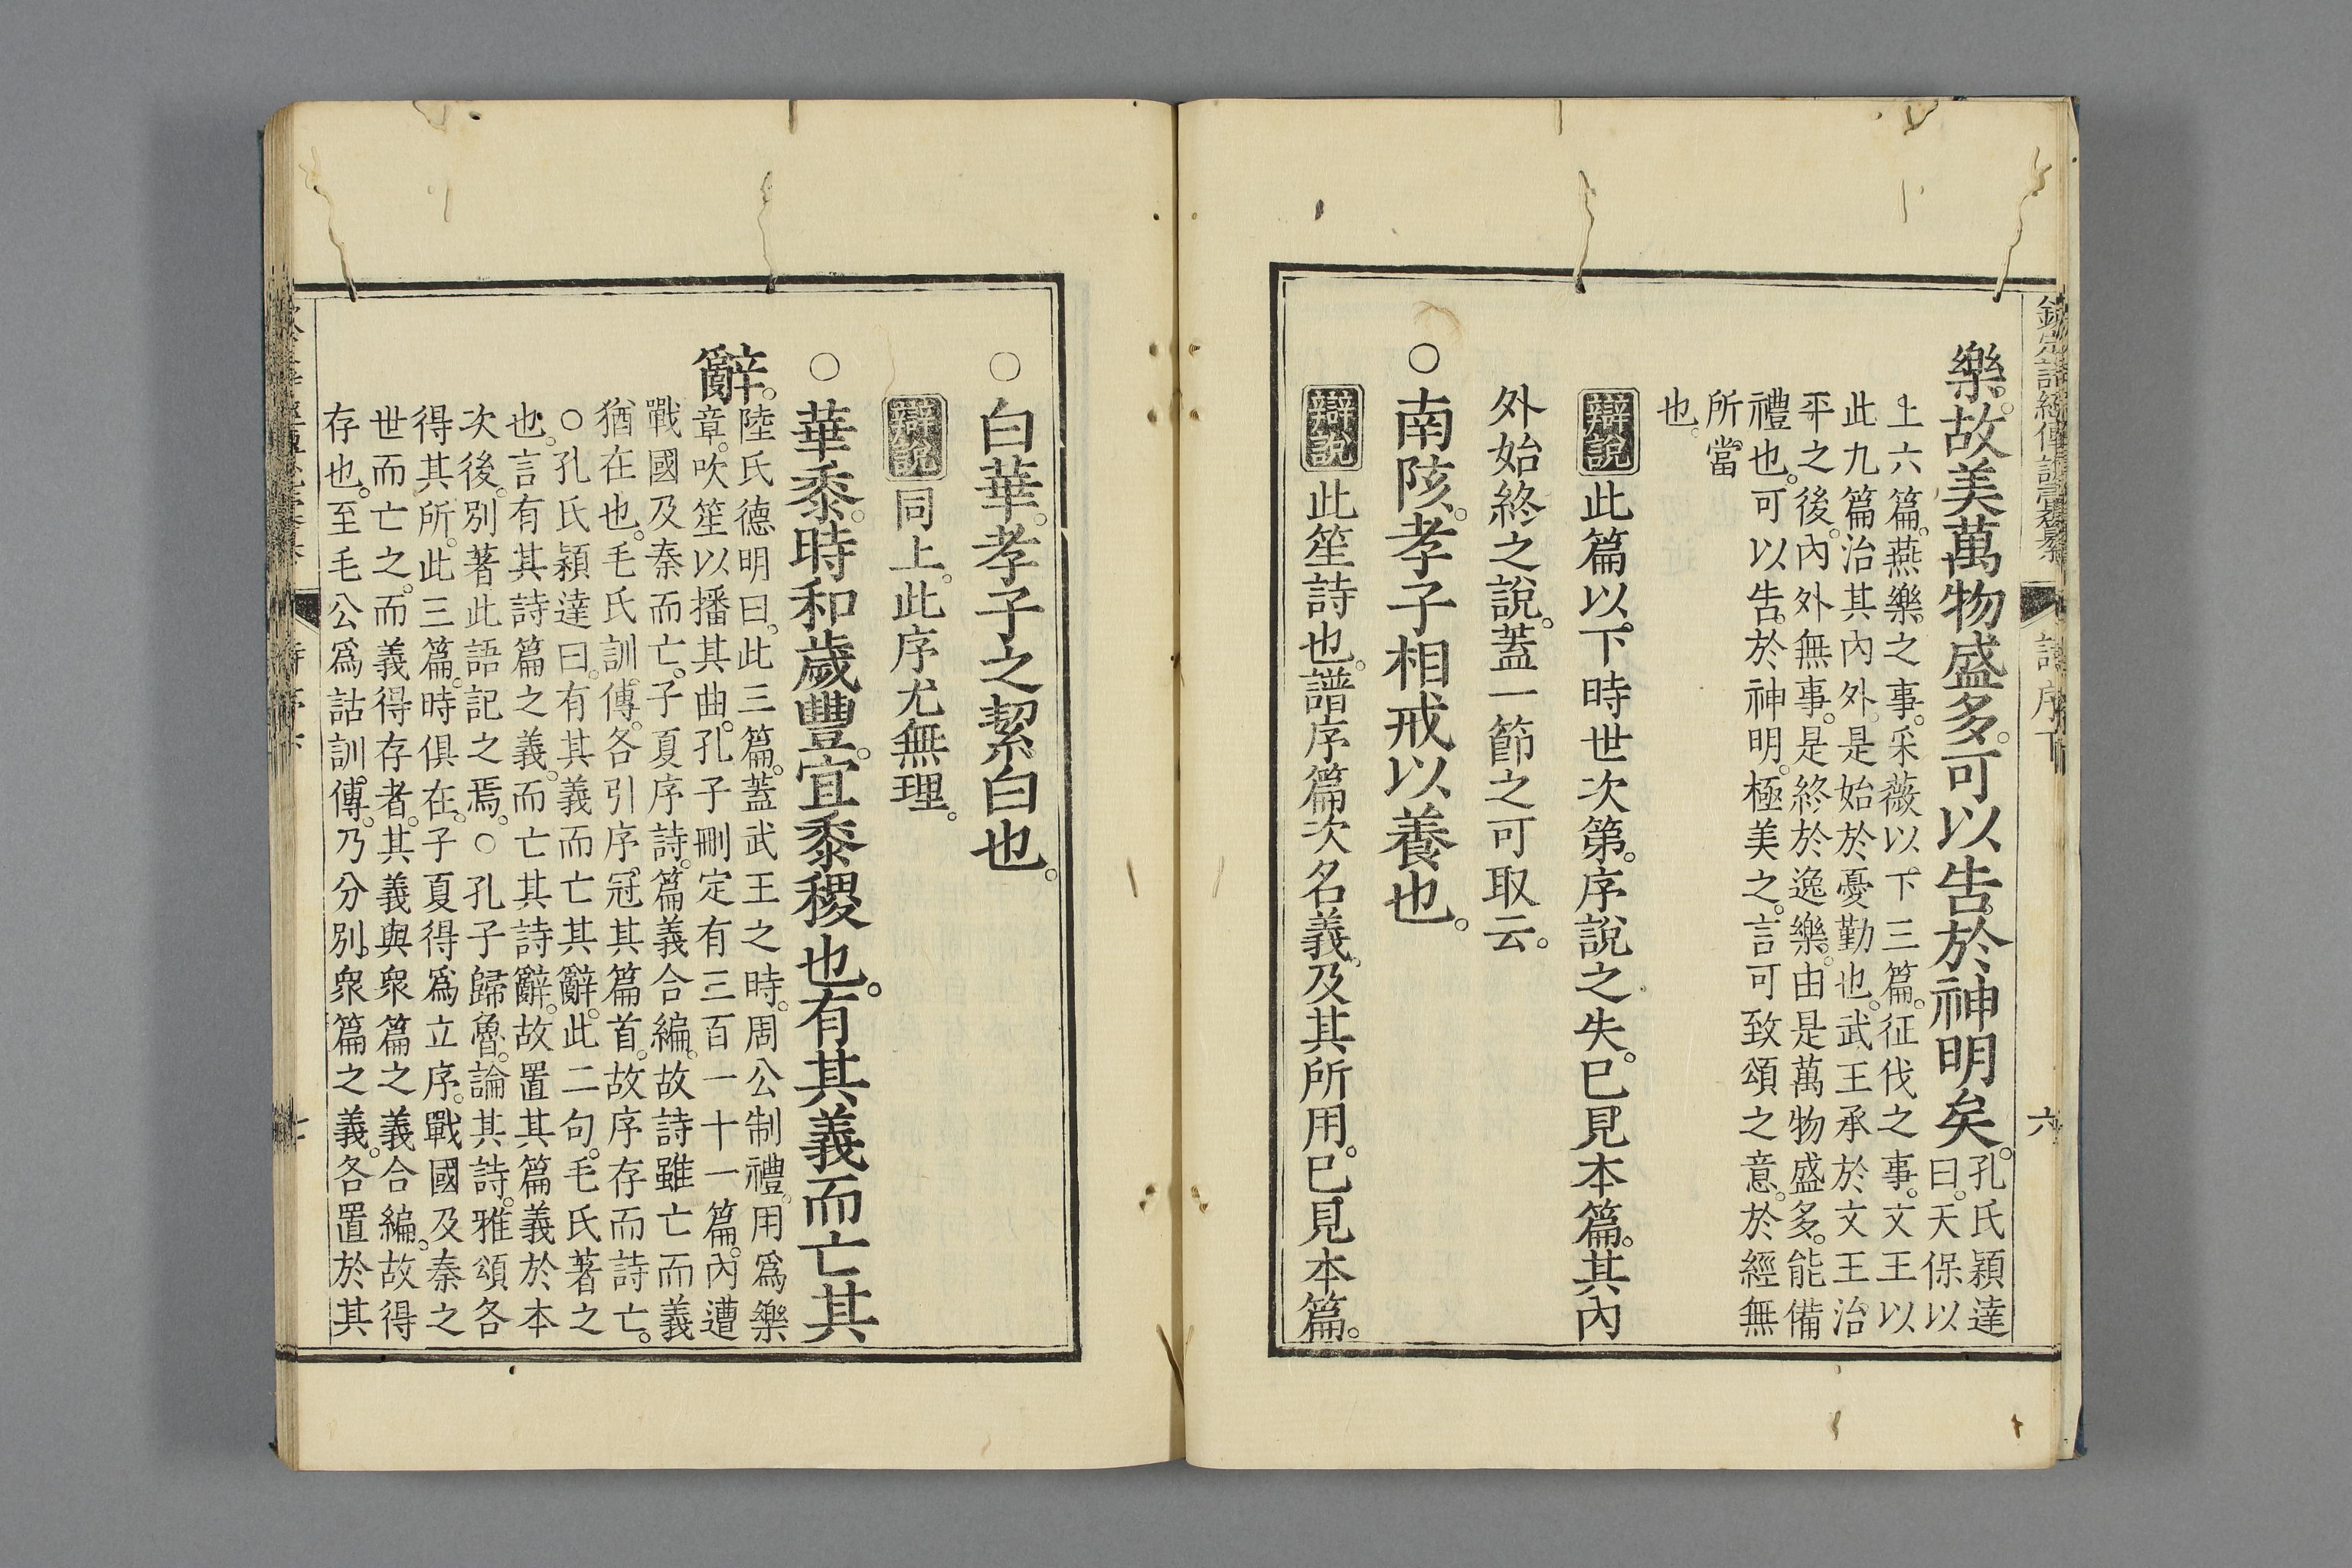 欽定詩經傳說彙纂
詩序下
六
樂。故美萬物盛多。可以告於神明矣。孔氏穎達
曰。天保以
上六篇。燕樂之事。采薇以下三篇。征伐之事。文王以
此九篇治其內外。是始於憂勤也。武王承於文王治
平之後。內外無事。是終於逸樂。由是萬物盛多。能備
禮也。可以告於神明。極美之言。可致頌之意。於經無
所當
也。
辯說此篇以下時世次第。序說之失。已見本篇。其內
外始終之說。蓋一節之可取云。
○南陔。孝子相戒以養也。
辯說此笙詩也。譜序篇次名義。及其所用。已見本篇。
○白華。孝子之絜白也。
辯說同上。此序尤無理。
○華黍。時和歲豐。宜黍稷也。有其義而亡其
辭。陸氏德明曰。此三篇。蓋武王之時。周公制禮。用爲樂
章。吹笙以播其曲。孔子刪定有三百一十一篇。內遭
戰國及秦而亡。子夏序詩。篇義合編。故詩雖亡而義
猶在也。毛氏訓傳。各引序冠其篇首。故序存而詩亡。
○孔氏穎達曰。有其義而亡其辭。此二句。毛氏著之
也。言有其詩篇之義。而亡其詩辭。故置其篇義於本
次後。別著此語記之焉。○孔子歸魯。論其詩。雅頌各
得其所。此三篇。時俱在。子夏得爲立序。戰國及秦之
世而亡之。而義得存者。其義與衆篇之義合編。故得
存也。至毛公爲詁訓傳。乃分別衆篇之義。各置於其
七